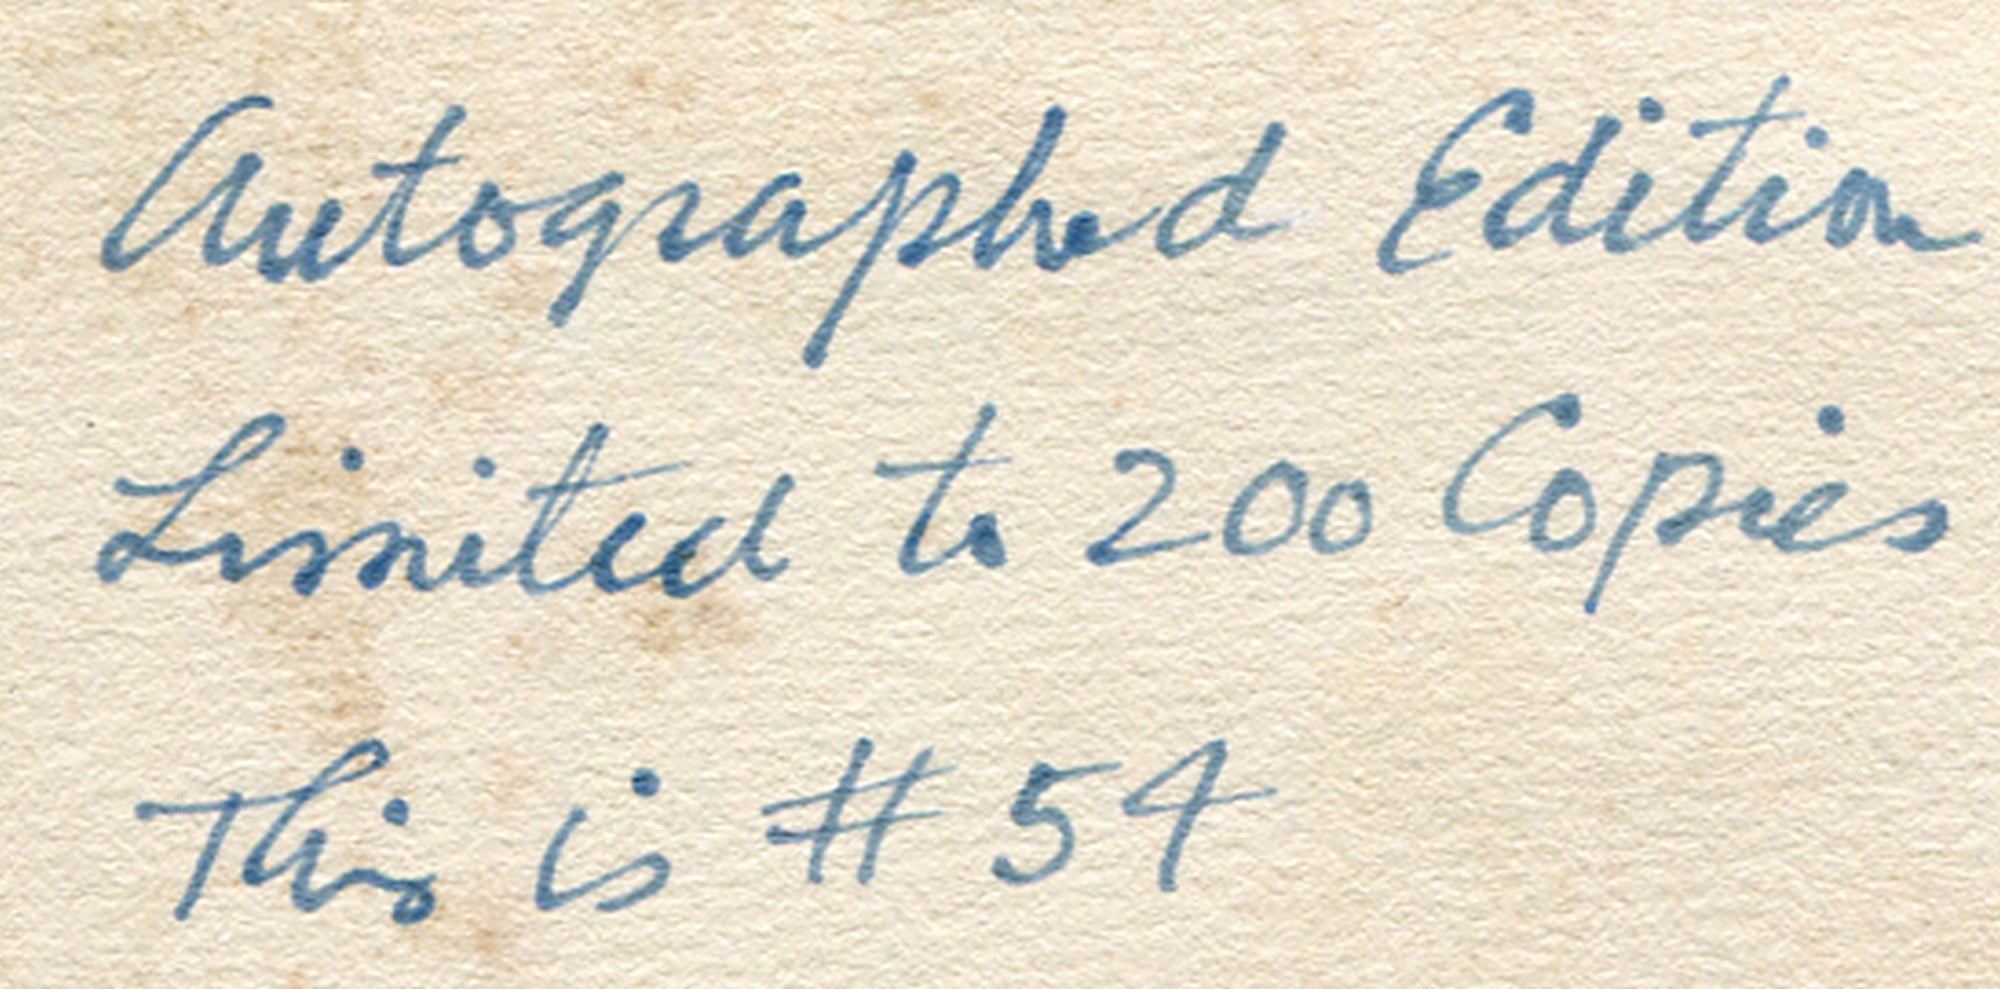 Autographed Edition
Limited to 200 Copies
This is # 54